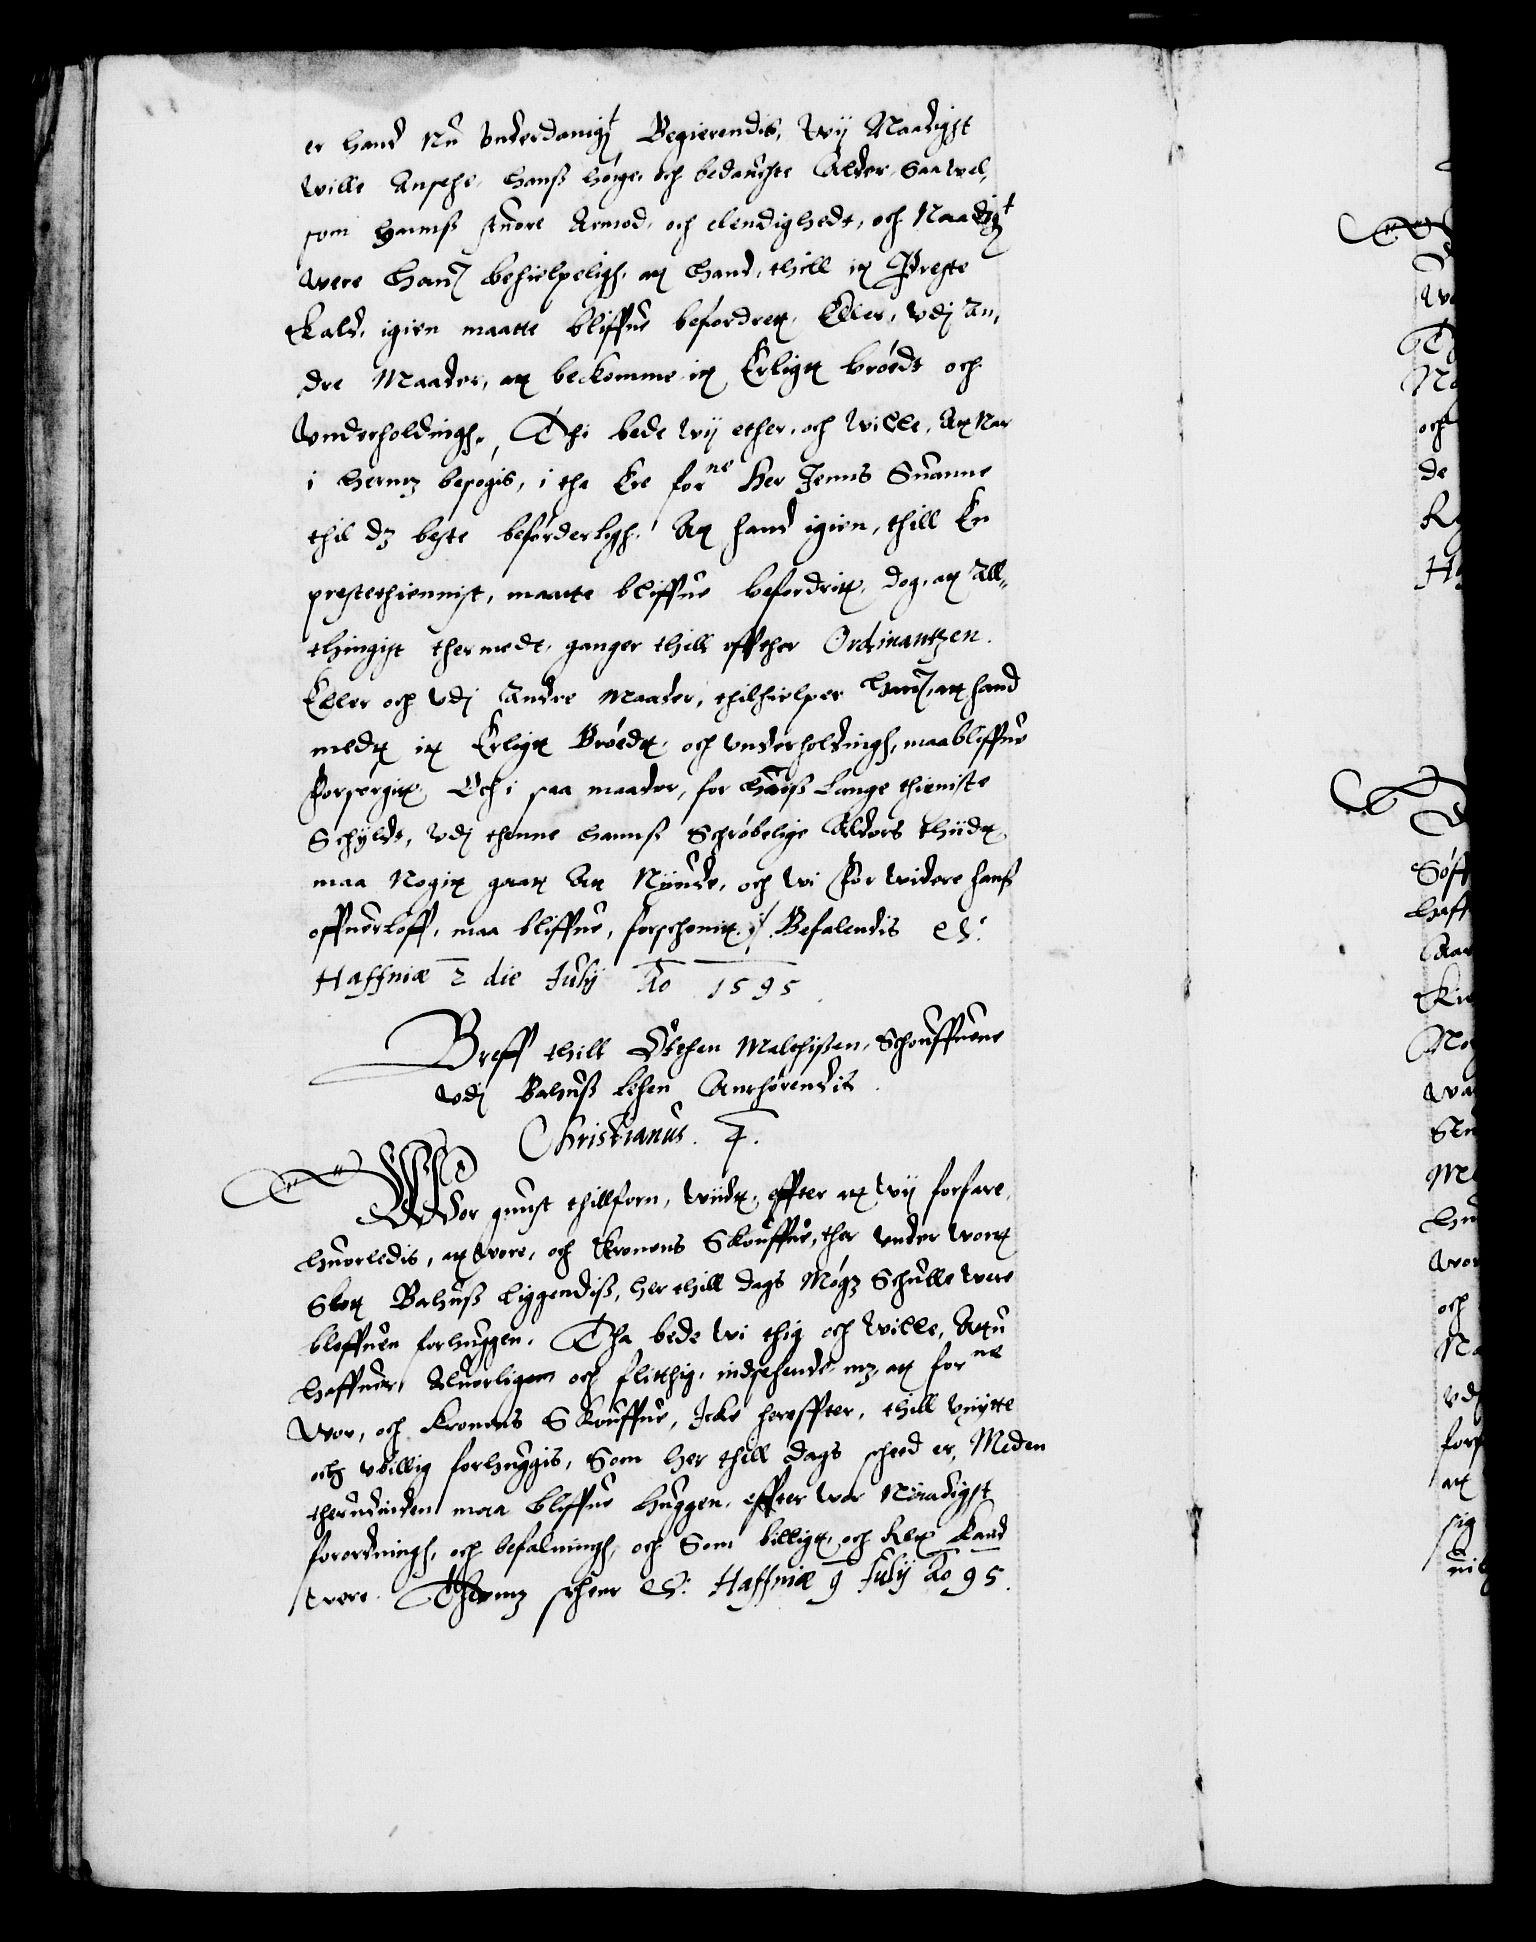 er hand Nu Underdanigst Begierendis, Wij Naadigst
wille Ansehe, hanß høige och bedauchte Alder, saa vel,
som hannß stuore Armod, och elendighedt, och Naadigst
were hannem behielpeligh, att hand, thill it Preste
Kald, igien maatte bliffue befordret, Eller, Udj An,
dre Maader, att bekomme it Erligt brødt och
Underholdingh, Thi bede Wij ether, och Wille, At Nar
i hermz besøgis, i tha Ere forne Her Jenns Suanne
thil dz beste beforderligh, At hand igien, thill En
prestethiennist, maatte bliffue befordrit, dog, at All„
thingist thermedt, ganger thill effther Ordinantzen.
Eller och Udj Andre Maader, thilhielper hannem, at hand
medt it Erligt Brødt, och Underholdingh, maa bliffue
Forsørgit, Och i saa maader, for hanß Lange thieniste
Schyldt, Udj thenne hannß Schrøbelige Alders thiidt
maa Nogit gaat At Nyude, och Wi For widere hanß
offuerløff, maa bliffue, forschonit. Befalendis etc:
Haffniæ 2 die Julij Ao 1595.
Breff thill Sthen Maltheßen, Schouffuene
Udj Bahuß Lehen Anrhørendis.
Christianus. 4.
Vor gunst thillforn, Wiidt, effter at Wij forfare,
huorledis, at Wore, och Kronens Skouffue, ther Under Wort
Slot Bahuß Liggendiß, her thill dags Møgz Schulle were
bleffuen forhuggen, Tha bede Wi thig och Wille, At du
haffuer, Aluorligen och flitthig, indsehende mz, at forne
Wor, och Kronens Skouffue, Icke hereffter, thill Unytte
och Ubillig forhuggis, Som her thill dags scheed er, Meden
therudinden maa bliffue huggen, effter Wor Naadigst
forordningh, och befalningh, och Som billigt, och Ret Kand
were. Thermz scheer etc: Haffniæ 9 Julij Ao 95.